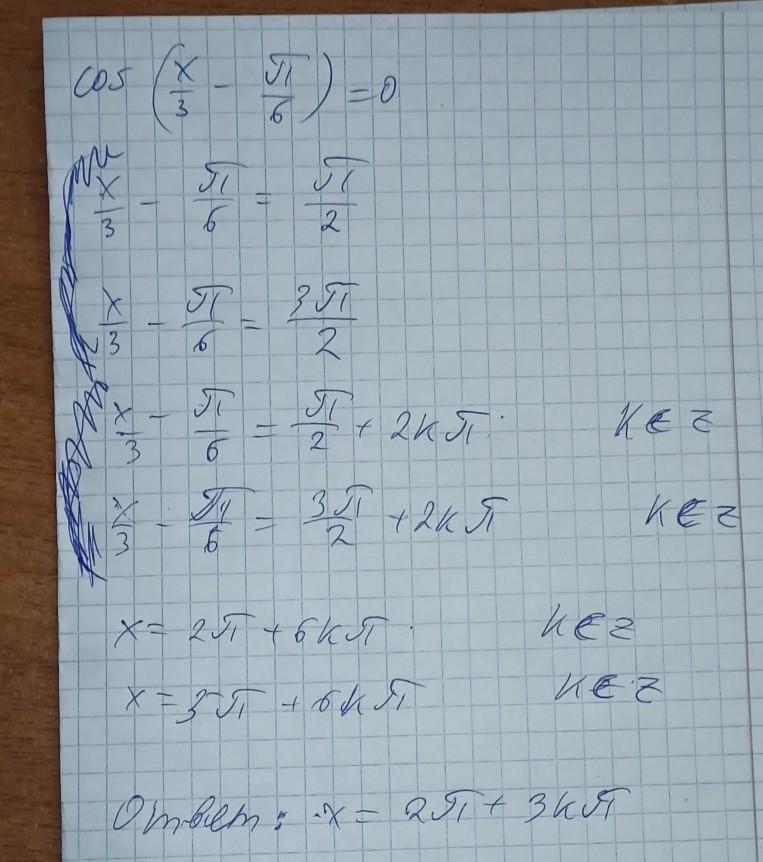 cos (x/3 - π/6) = 0
x/3 - π/6 = π/2
x/3 - π/6 = 3π/2
x/3 - π/6 = π/2 + 2kπ k ∈ z
x/3 - π/6 = 3π/2 + 2kπ k ∈ z
x = 2π + 6kπ k ∈ z
x = 5π + 6kπ k ∈ z
Ответ: x = 2π + 3kπ